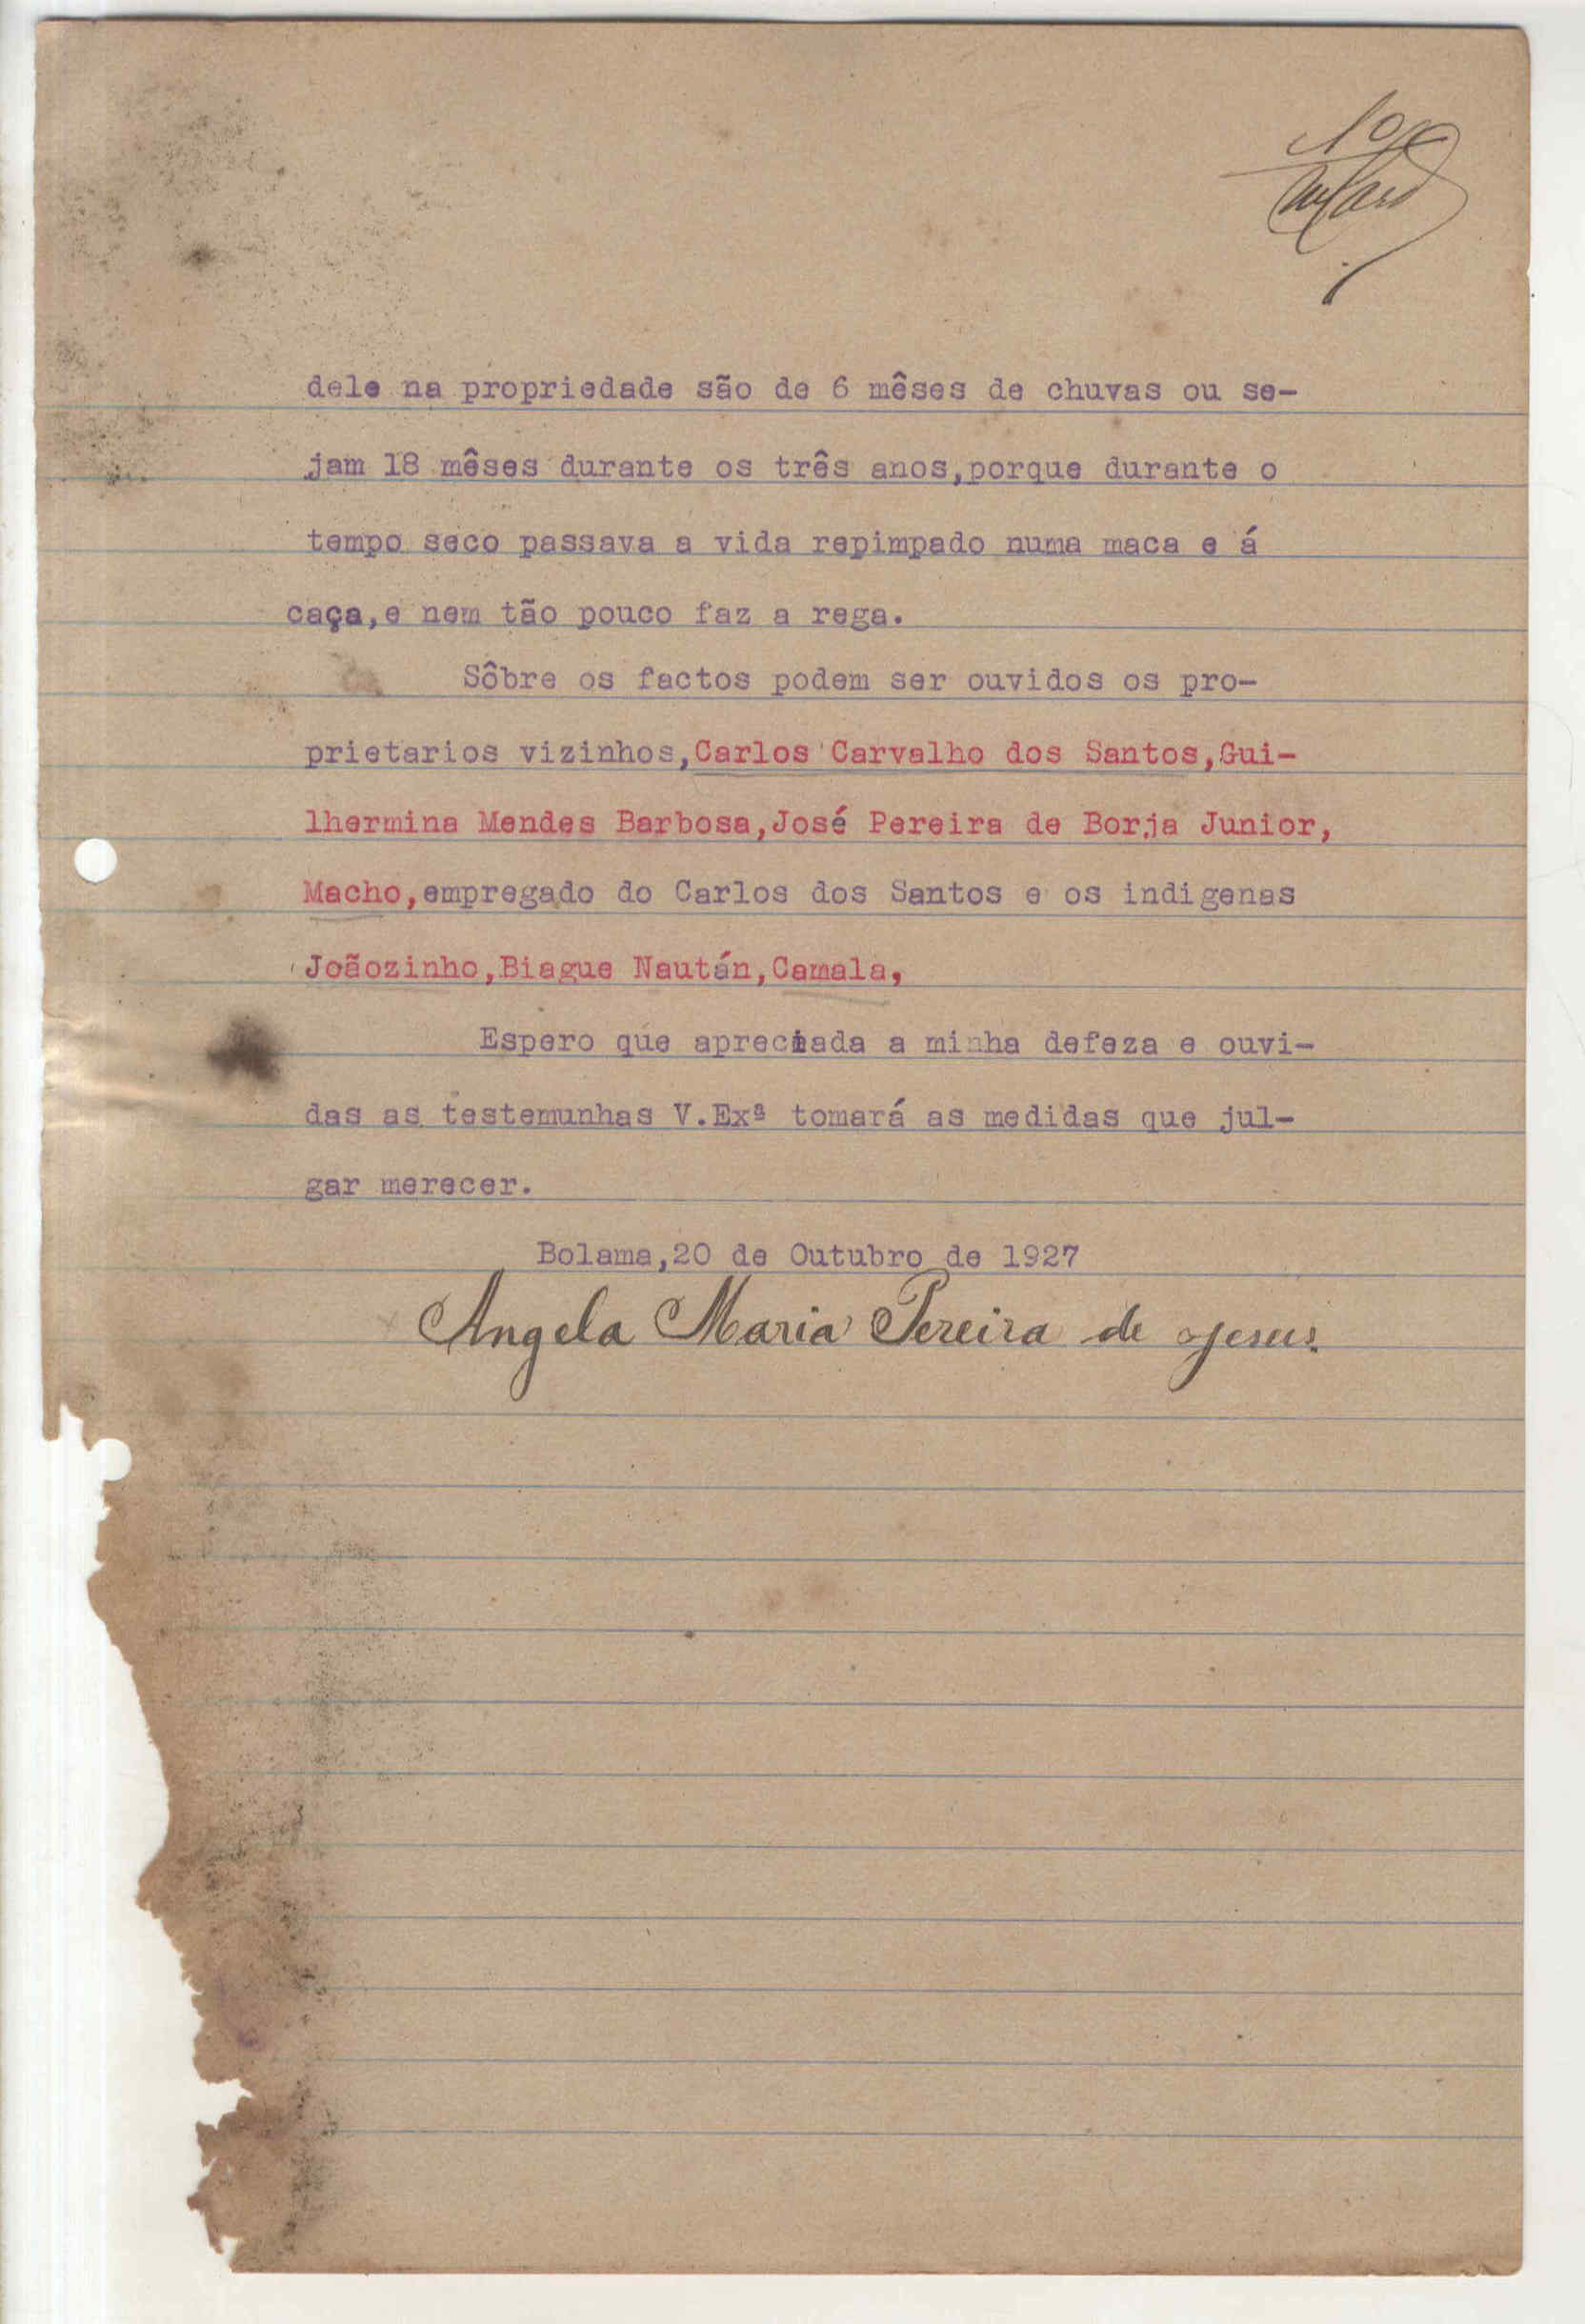 10
dele na propriedade são de 6 mêses de chuvas ou se-
jam 18 mêses durante os três anos,porque durante o
tempo seco passava a vida repimpado numa maca e á
caça,e nem tão pouco faz a rega.
Sôbre os factos podem ser ouvidos os pro-
prietarios vizinhos,Carlos Carvalho dos Santos,Gui-
lhermina Mendes Barbosa,José Pereira de Borja Junior,
Macho,empregado do Carlos dos Santos e os indigenas
Joãozinho,Biague Naután,Camala,
Espero que apreciada a minha defeza e ouvi-
das as testemunhas V.Exª tomará as medidas que jul-
gar merecer.
Bolama,20 de Outubro de 1927
Angela Maria Pereira de Jesus.